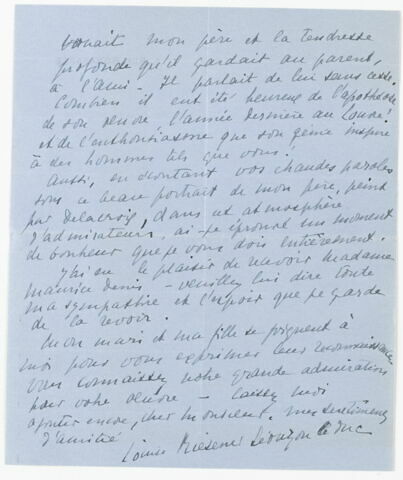 vouait mon père et la tendresse
profonde qu'il gardait au parent,
à l'ami - Il parlait de lui sans cesse.
Combien il eut été heureux de l'apothéose
de son œuvre l'année dernière au Louvre !
et de l'enthousiasme que son génie inspire
à des hommes tels que vous.
Aussi, en écoutant vos chaudes paroles
sous ce beau portrait de mon père, peint
par Delacroix, dans cet atmosphère
d'admirateurs, ai-je éprouvé un moment
de bonheur que je vous dois entièrement.
J'ai eu le plaisir de revoir Madame
Maurice Denis - veuillez lui dire toute
ma sympathie et l'espoir que je garde
de la revoir.
Mon mari et ma fille se joignent à
moi pour vous exprimer leur reconnaissance.
Vous connaissez notre grande admiration
pour votre œuvre - laissez moi
ajouter encore, cher Monsieur, mes sentiments
d'amitié
Louise Riesener Léouzon le Duc